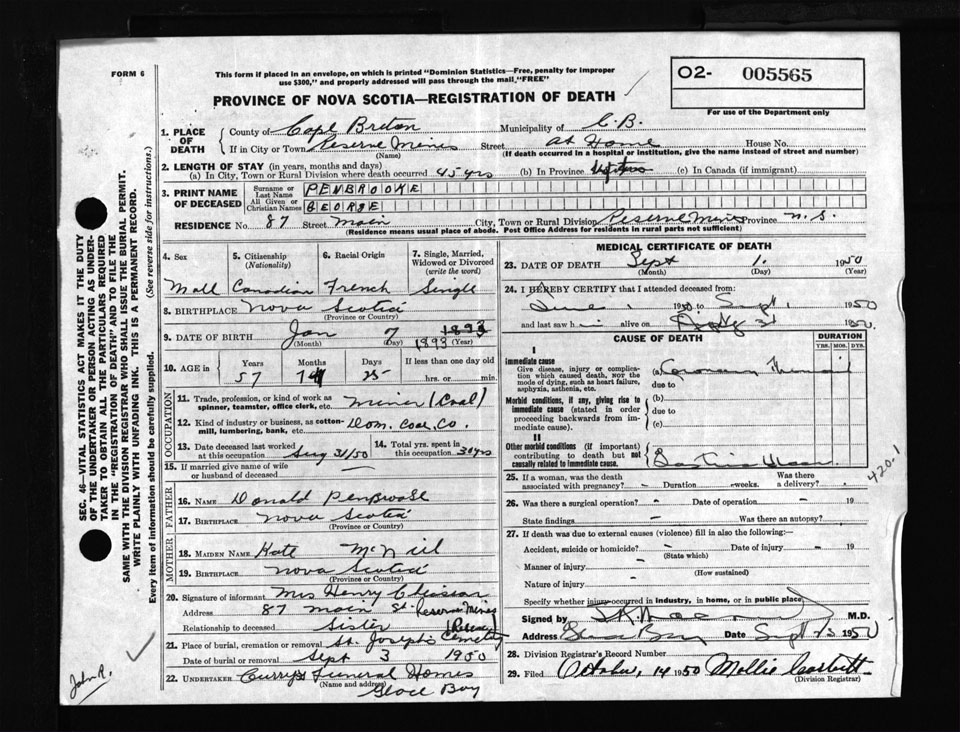 FORM 6
This form if placed in an envelope, on which is printed "Dominion Statistics—Free, penalty for improper
use $300," and properly addressed will pass through the mail "FREE"
O2- 005565
For use of the Department only
PROVINCE OF NOVA SCOTIA—REGISTRATION OF DEATH
1. PLACE OF DEATH County of Cape Breton Municipality of C.B.
If in City or Town Reserve Mines Street At Home House No.
(Name) (If death occurred in a hospital or institution, give the name instead of street and number)
2. LENGTH OF STAY (in years, months and days)
(a) In City, Town or Rural Division where death occurred 45 yrs (b) In Province (c) In Canada (if immigrant)
3. PRINT NAME OF DECEASED Surname or Last Name PENBROOKE
All Given or Christian Names GEORGE
RESIDENCE No. 87 Street Main City, Town or Rural Division Reserve Mines Province N.S.
(Residence means usual place of abode. Post Office Address for residents in rural parts not sufficient)
4. Sex 5. Citizenship (Nationality) 6. Racial Origin 7. Single, Married, Widowed or Divorced (write the word)
Mall Canadian French Single
8. BIRTHPLACE Nova Scotia
(Province or Country)
9. DATE OF BIRTH Jan 7 1893
(Month) (Day) 1893 (Year)
10. AGE in Years Months Days If less than one day old
57 25 hrs. or min.
OCCUPATION
11. Trade, profession or kind of work as spinner, teamster, office clerk, etc. Miner (Coal)
12. Kind of industry or business, as cotton-mill, lumbering, bank, etc. Dom. Coal Co.
13. Date deceased last worked at this occupation Aug 31/50 14. Total yrs. spent in this occupation 30 yrs
15. If married give name of wife or husband of deceased —
FATHER
16. NAME Donald
17. BIRTHPLACE Nova Scotia
(Province or Country)
MOTHER
18. MAIDEN NAME Kate McNeil
19. BIRTHPLACE Nova Scotia
(Province or Country)
20. Signature of informant Mrs Henry
Address 87 Main St. Reserve Mines
Relationship to deceased Sister
21. Place of burial, cremation or removal St. Joseph's Cemetery
Date of burial or removal Sept 3 1950
22. UNDERTAKER Curry's Funeral Homes
(Name and address) Glace Bay
MEDICAL CERTIFICATE OF DEATH
23. DATE OF DEATH Sept 1. 1950
(Month) (Day) (Year)
24. I HEREBY CERTIFY that I attended deceased from:
June 1 1950 to Sept 1 1950
and last saw him alive on 31 1950.
CAUSE OF DEATH DURATION
YRS. MOS. DYS.
I
Immediate cause
Give disease, injury or complication which caused death, NOT the mode of dying, such as heart failure, asphyxia, asthenia, etc.
(a) Coronary
due to
Morbid conditions, if any, giving rise to immediate cause (stated in order proceeding backwards from immediate cause).
(b)
due to
(c)
II
Other morbid conditions (if important) contributing to death but not causally related to immediate cause.
420-1
25. If a woman, was the death associated with pregnancy? - Duration -weeks. Was there a delivery? -
26. Was there a surgical operation? - Date of operation - 19
State findings — Was there an autopsy?
27. If death was due to external causes (violence) fill in also the following:—
Accident, suicide or homicide? - Date of injury - 19
(State which)
Manner of injury -
(How sustained)
Nature of injury -
Specify whether injury occurred in industry, in home, or in public place
Signed by M.D.
Address Glace Bay Date Sept 1950
28. Division Registrar's Record Number
29. Filed October, 14 1950 Mollie
(Division Registrar)
SEC. 46—VITAL STATISTICS ACT MAKES IT THE DUTY
OF THE UNDERTAKER OR PERSON ACTING AS UNDER-
TAKER TO OBTAIN ALL THE PARTICULARS REQUIRED
IN THE "REGISTRATION OF DEATH" AND TO FILE THE
SAME WITH THE DIVISION REGISTRAR WHO SHALL ISSUE THE BURIAL PERMIT.
WRITE PLAINLY WITH UNFADING INK. THIS IS A PERMANENT RECORD.
Every item of information should be carefully supplied. (See reverse side for instructions.)
John R.